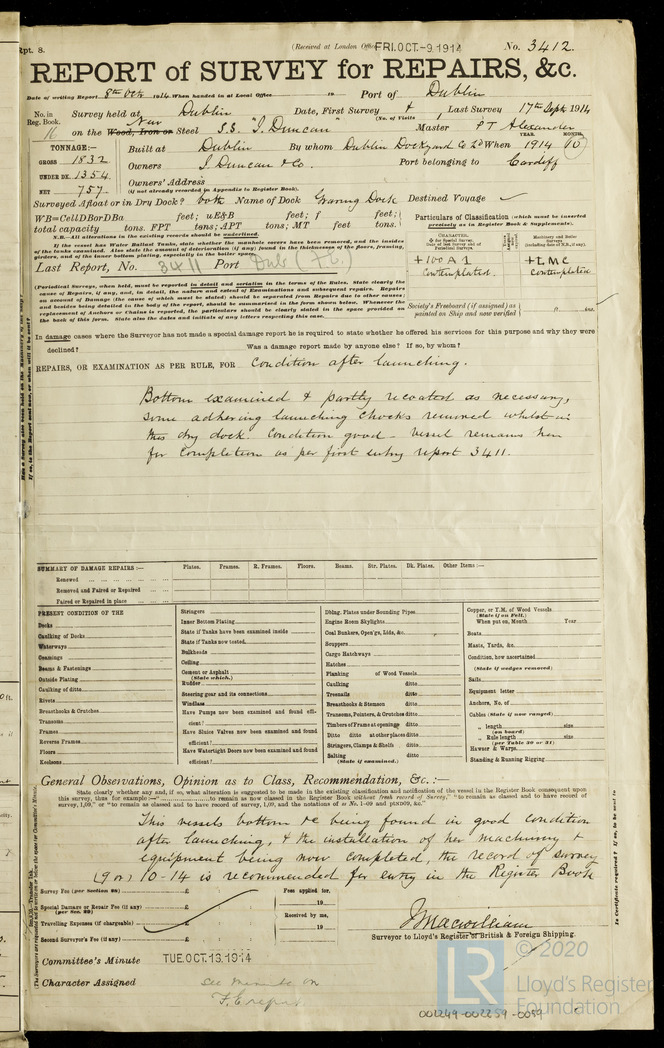 Rpt. 8.
(Received at London Office FRI. OCT. -9 1914
No. 3412.
REPORT of SURVEY for REPAIRS, &c.
Date of writing Report 8th Oct 1914 When handed in at Local Office 19 Port of Dublin
No. in Reg. Book. Survey held at Dublin Date, First Survey Last Survey 17th Sept 1914
(No. of Visits
on the Wood, Iron or Steel S.S. "J. Duncan" Master P T Alexander
TONNAGE:— Built at Dublin By whom Dublin Dockyard Co Ld When 1914
YEAR. MONTH.
GROSS 1832 Owners J. Duncan & Co. Port belonging to Cardiff
UNDER DK. 1354 Owners' Address
(if not already recorded in Appendix to Register Book).
NET 757
Surveyed Afloat or in Dry Dock? both Name of Dock Graving Dock Destined Voyage
WB=CellDBorDBa feet; uE&B feet; f feet;
total capacity tons. FPT tons; APT tons; MT feet tons.
Particulars of Classification (which must be inserted precisely as in Register Book & Supplements).
N.B.—All alterations in the existing records should be underlined.
If the vessel has Water Ballast Tanks, state whether the manhole covers have been removed, and the insides
of the tanks examined. Also state the amount of deterioration (if any) found in the thicknesses of the floors, framing,
girders, and of the inner bottom plating, especially in the boiler space.
Last Report, No. 3411 Port Dub
+100A1
contemplated.
+LMC
contemplated
(Periodical Surveys, when held, must be reported in detail and seriatim in the terms of the Rules. State clearly the
cause of Repairs, if any, and, in detail, the nature and extent of Examinations and subsequent repairs. Repairs
on account of Damage (the cause of which must be stated) should be separated from Repairs due to other causes;
and besides being detailed in the body of the report, should be summarised in the form shown below. Whenever the
replacement of Anchors or Chains is reported, the particulars should be clearly stated in the space provided on
the back of this form. State also the dates and initials of any letters respecting this case.
Society's Freeboard (if assigned) as
painted on Ship and now verified
In damage cases where the Surveyor has not made a special damage report he is required to state whether he offered his services for this purpose and why they were
declined? Was a damage report made by anyone else? If so, by whom?
REPAIRS, OR EXAMINATION AS PER RULE, FOR Condition after launching.
Bottom examined & partly recoated as necessary,
some adhering launching chocks removed whilst in
this dry dock. Condition good - Vessel remains here
for completion as per first entry report 3411.
SUMMARY OF DAMAGE REPAIRS:— Plates. Frames. R. Frames. Floors. Beams. Str. Plates. Dk. Plates. Other Items:—
Renewed
Removed and Faired or Repaired
Faired or Repaired in place
PRESENT CONDITION OF THE
Decks
Caulking of Decks
Waterways
Coamings
Beams & Fastenings
Outside Plating
Caulking of ditto
Rivets
Breasthooks & Crutches
Transoms
Frames
Reverse Frames
Floors
Keelsons
Stringers
Inner Bottom Plating
State if Tanks have been examined inside
State if Tanks now tested
Bulkheads
Ceiling
Cement or Asphalt
(State which.)
Rudder
Steering gear and its connections
Windlass
Have Pumps now been examined and found efficient?
Have Sluice Valves now been examined and found
efficient?
Have Watertight Doors now been examined and found
efficient?
Dblng. Plates under Sounding Pipes
Engine Room Skylights
Coal Bunkers, Open'gs, Lids, &c.
Scuppers
Cargo Hatchways
Hatches
Planking of Wood Vessels
Caulking ditto
Treenails ditto
Breasthooks & Stemson ditto
Transoms, Pointers, & Crutches ditto
Timbers of Frame at openings ditto
Ditto ditto at other places ditto
Stringers, Clamps & Shelfs ditto
Salting ditto
(State if examined.)
Copper, or Y.M. of Wood Vessels
(State if on Felt.)
When put on, Month Year
Boats
Masts, Yards, &c.
Condition, how ascertained
(State if wedges removed)
Sails
Equipment letter
Anchors, No. of
Cables (State if now ranged)
" length size
(on board)
" Rule length size
(per Table 30 or 31)
Hawser & Warps
Standing & Running Rigging
General Observations, Opinion as to Class, Recommendation, &c.:—
State clearly whether any, if so, what alteration is suggested to be made in the existing classification and notification of the vessel in the Register Book consequent upon
this survey, thus for example:—" to remain as now classed in the Register Book without fresh record of Survey," "to remain as classed and to have record of
survey, 1,09," or "to remain as classed and to have record of survey, 1,09, and the notations of ss No. 1-09 and ptND09, &c."
This vessels bottom &c being found in good condition
after launching, & the installation of her machinery &
equipment being now completed, the record of survey
(9 or) 10-14 is recommended for entry in the Register Book
Survey Fee (per Section 29) £ Fees applied for,
Special Damage or Repair Fee (if any) £ 19
(per Sec. 29)
Travelling Expenses (if chargeable) £ Received by me,
Second Surveyor's Fee (if any) £ 19
J Macwilliam
Surveyor to Lloyd's Register of British & Foreign Shipping.
Committee's Minute TUE. OCT. 13. 1914
Character Assigned see minute on
F.E. report
© 2020
LR
Lloyd's Register
Foundation
001249-002259-0059